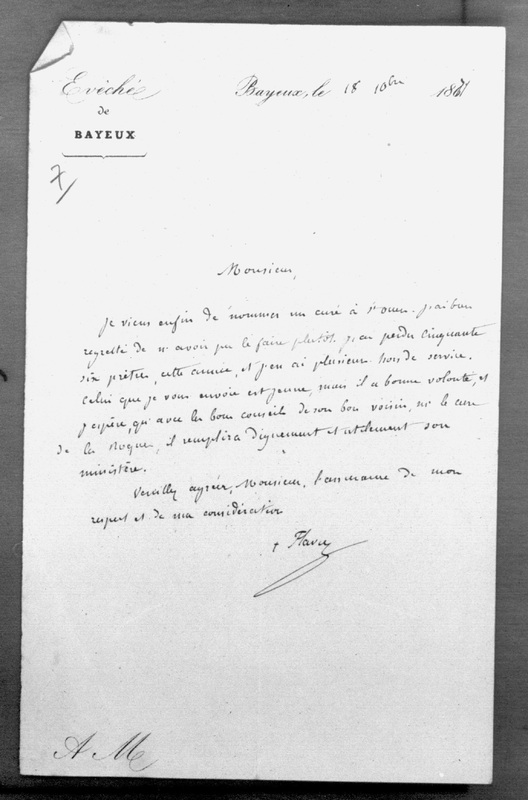 Evêché
de
BAYEUX
Bayeux, le 18 10bre 1871
Monsieur,
Je viens enfin de nommer un curé à St Ouen. J'ai bien
regretté de n'avoir pu le faire plutôt. J'ai perdu cinquante
six prêtres, cette année, et j'en ai plusieurs hors de service.
Celui que je vous envoie est jeune, mais il a bonne volonté, et
j'espère, qu'avec les bons conseils de son bon voisin, mr le curé
de la Roque, il remplira dignement et utilement son
ministère.
Veuillez agréer, Monsieur, l'assurance de mon
respect et de ma considération
+ Flavien
A M